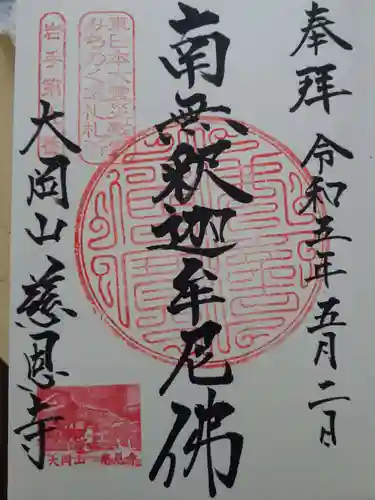 奉拝
令和五年五月二日
南無釈迦牟尼佛
東日本大震災慰霊
みちのく巡礼札所
岩手第
大岡山
慈恩寺
大岡山 慈恩寺